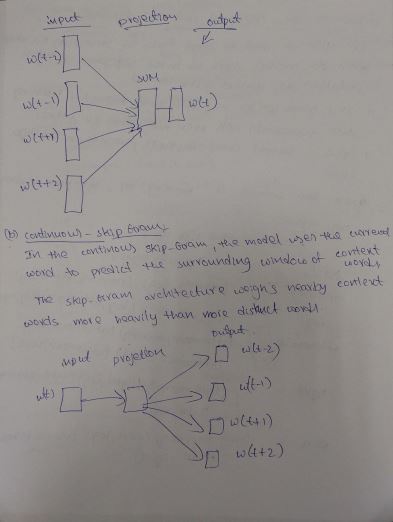 input projection output
w(t-2)
SUM
w(t-1)
w(t)
w(t+1)
w(t+2)
(b) continuous - skip Gram
In the continous skip-Gram, the model uses the current
word to predict the surrounding window of context
words
The skip-Gram architecture weighs nearby context
words more heavily than more distinct words
output
input projection
w(t-2)
w(t)
w(t-1)
w(t+1)
w(t+2)